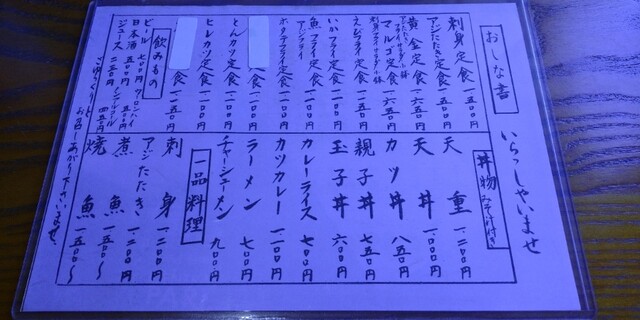 いらっしゃいませ
おしな書
刺身定食 一、五〇〇円
アジたたき定食 一、五〇〇円
黄金定食 一、六五〇円
マルゴ定食 一、六五〇円
えびフライ定食 一、五〇〇円
いかフライ定食 一、二〇〇円
魚フライ定食 一、二〇〇円
アジフライ
ホタテフライ定食 一、二〇〇円
食 一、二〇〇円
とんカツ定食 一、二〇〇円
ヒレカツ定食 一、二〇〇円
食 一、一五〇円
飲みもの
ビール 七〇〇円
日本酒 五〇〇円
ジュース 二五〇円
ウーロンハイ 五〇〇円
ノンアルコール 四五〇円
丼物 みそ汁付き
天重 一、二〇〇円
天丼 一、〇〇〇円
カツ丼 八五〇円
親子丼 七五〇円
玉子丼 六〇〇円
カレーライス 七〇〇円
カツカレー 一、一〇〇円
ラーメン 七〇〇円
チャーシューメン 九〇〇円
一品料理
刺身 一、二〇〇円
アジたたき 一、二〇〇円
煮魚 一、五〇〇〜
焼魚 一、五〇〇〜
ごゆっくりとお召しあがり下さいませ。